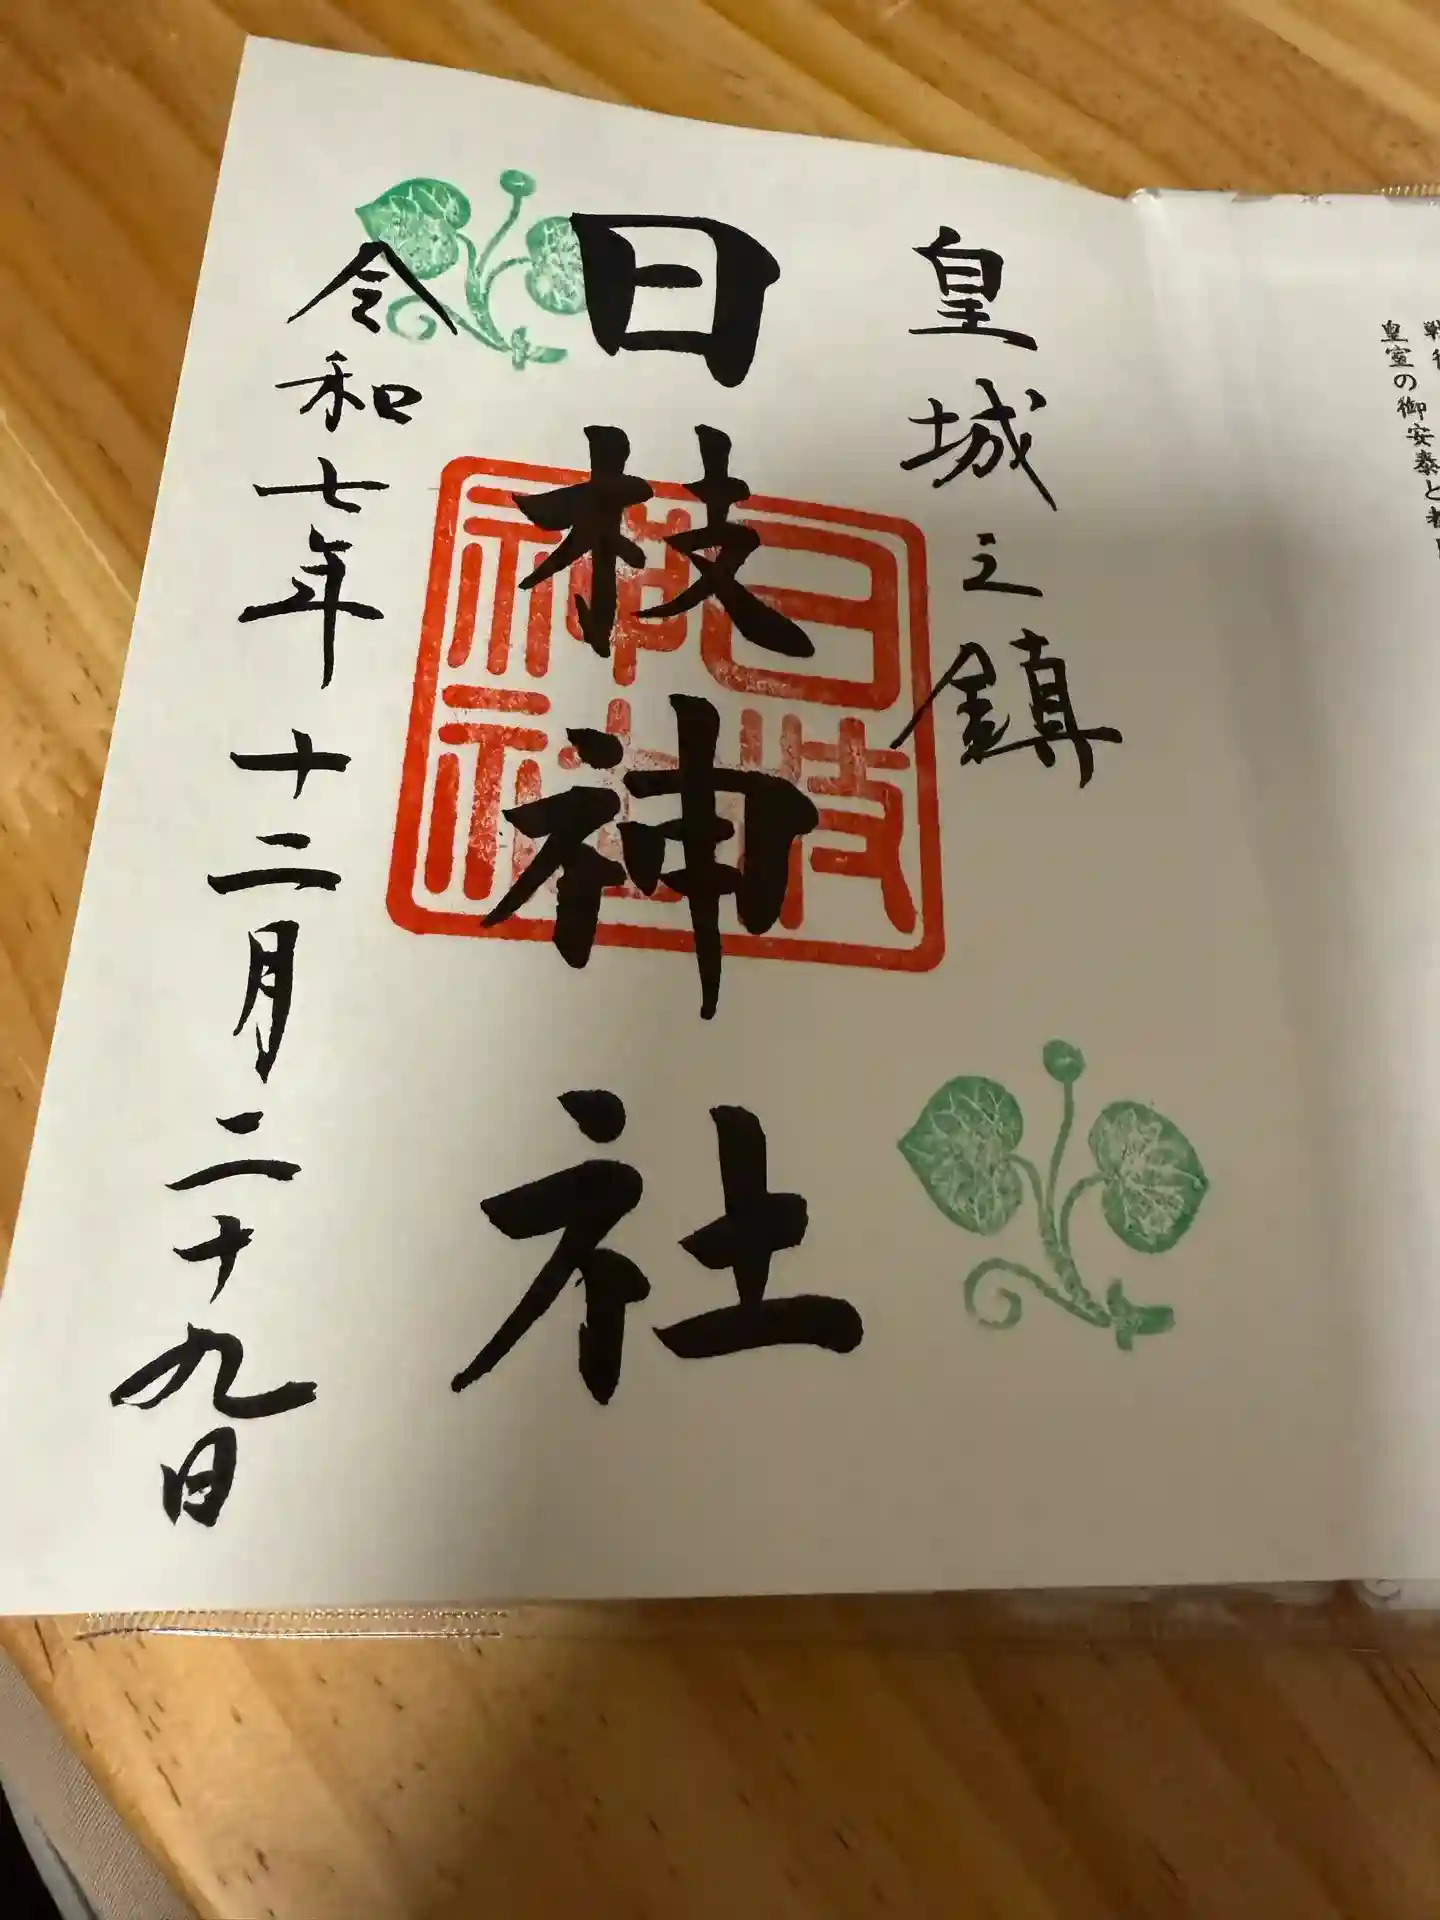 皇室の御安泰と
皇城之鎮
日枝神社
日枝神社
令和七年十二月二十九日